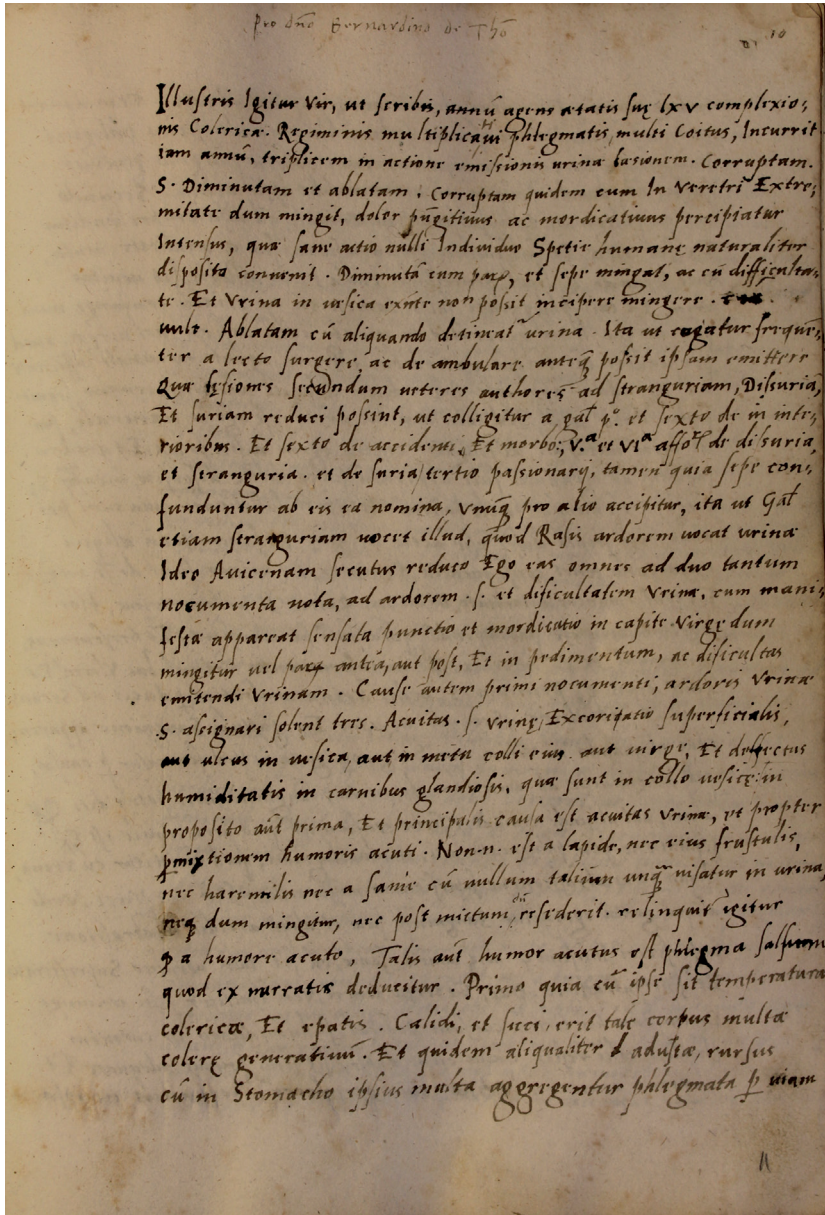 Pro dño Bernardino de Thō
10
Illustris Igitur Vir, ut scribis, annũ agens ætatis suę lxv complexio;
nis Colericæ. Regiminis multiplicavi phlegmatis, multi Coitus, Incurrit
iam annũ, triplicem in actione emissionis urinæ læsionem. Corruptam.
S. Diminutam et ablatam. Corruptam quidem cum In Veretri Extre;
mitate dum mingit, dolor pũgitivus ac mordicativus percipiatur
Intensus, quæ sane actio nulli Individuo Spetie humanę naturaliter
disposito convenit. Diminutã cum et sepe mingat, ac cũ difficulta;
te. Et Vrina in vesica exñte non possit incipere mingere.
vult. Ablatam cũ aliquando detineat̃ urina. Ita ut cogatur frequẽ;
ter a lecto surgere, ac de ambulare anteq̃ possit ipsam emittere
Quæ lęsiones secundum veteres authores ad stranguriam, Dissuriã,
Et suriam reduci possint, ut colligitur a gal̃ pº. et sexto de in inte;
rioribus. Et sexto de accidenti, Et morbo; V.ª et VIª affor̃ de disuria,
et stranguria. et de suria, tertio passionarij, tamen quia sepe con;
funduntur ab eis ea nomina, vnũq̃ pro alio accipitur, ita ut Gal̃
etiam stranguriam vocet illud, quod Rasis ardorem vocat urinæ
Ideo Avicenam secutus reduco Ego eas omnes ad duo tantum
nocumenta nota, ad ardorem .s. et dificultatem Vrinæ, cum mani;
festæ appareat sensata punctio et mordicatio in capite Virge dum
mingitur vel antea, aut post, Et in pedimentum, ac dificultas
emitendi Vrinam. Cause autem primi nocumenti, ardoris Vrinæ
.S. asignari solent tres. Acuitas .s. vrinę, Excoriatio superficialis,
aut ulcus in vesica, aut in meta colli eius aut virge, Et defectus
humiditatis in carnibus glandiosis, quæ sunt in collo vesicę: in
proposito aut̃ prima, Et principalis causa est acuitas Vrinæ, et propter
p̃mixtionem humoris acuti. Non .n. est a lapide, nec eius frustulis,
nec harenulis nec a sanie cũ nullum talium unq̃ visatur in urina,
neq̃ dum mingitur, nec post mictum, cũ resederit. relinquit̃ igitur
q̃ a humore acuto, Talis aut̃ humor acutus est phlegma salsum
quod ex narratis deducitur. Primo quia cũ ipse sit temperatura
colericæ, Et epatis. Calidi, et sicci, erit tale corpus multæ
colerę generativũ. Et quidem aliqualiter adustæ, rursus
cũ in Stomacho ipsius multa aggregentur phlegmata p̱ viam
11